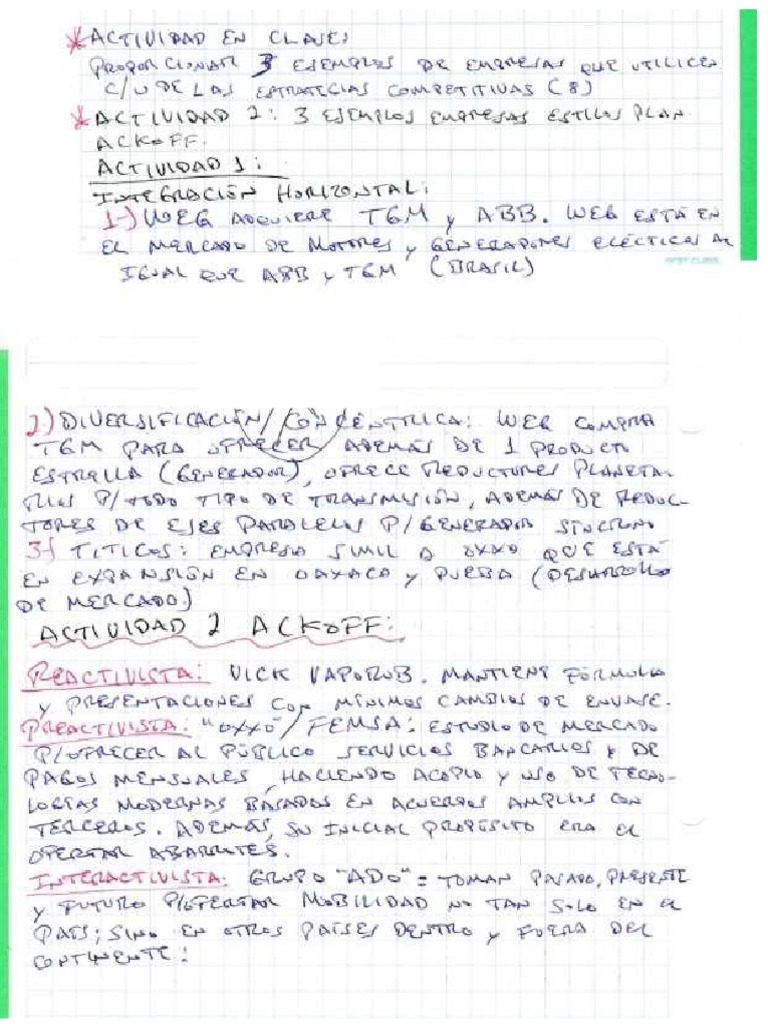 * ACTIVIDAD EN CLASE:
PROPORCIONAR 3 EJEMPLOS DE EMPRESAS QUE UTILICEN
C/U DE LAS ESTRATEGIAS COMPETITIVAS (8)
* ACTIVIDAD 2: 3 EJEMPLOS EMPRESAS ESTILOS PLAN.
ACKOFF.
ACTIVIDAD 1:
INTEGRACIÓN HORIZONTAL:
1-) WEG ADQUIERE TGM y ABB. WEG ESTÁ EN
EL MERCADO DE MOTORES y GENERADORES ELÉCTRICOS AL
IGUAL QUE ABB y TGM (BRASIL)
2-) DIVERSIFICACIÓN/CONCÉNTRICA: WEG COMPRA
TGM PARA OFRECER ADEMÁS DE 1 PRODUCTO
ESTRELLA (GENERADOR), OFRECE REDUCTORES PLANETA-
RIOS P/TODO TIPO DE TRANSMISIÓN, ADEMÁS DE REDUC-
TORES DE EJES PARALELOS P/GENERADOR SÍNCRONO
3-) TITICOS: EMPRESA SIMIL A OXXO QUE ESTÁ
EN EXPANSIÓN EN OAXACA y PUEBA (DESARROLLO
DE MERCADO)
ACTIVIDAD 2 ACKOFF:
REACTIVISTA: VICK VAPORUB. MANTIENE FÓRMULA
y PRESENTACIONES CON MÍNIMOS CAMBIOS DE ENVASE.
PREACTIVISTA: "OXXO"/FEMSA: ESTUDIO DE MERCADO
P/OFRECER AL PÚBLICO SERVICIOS BANCARIOS y DE
PAGOS MENSUALES, HACIENDO ACOPIO y USO DE TECNO-
LOGÍAS MODERNAS BASADAS EN ACUERDOS AMPLIOS CON
TERCEROS. ADEMÁS, SU INICIAL PROPÓSITO ERA EL
OFERTAR ABARROTES.
INTERACTIVISTA: GRUPO "ADO" = TOMAN PASADO, PRESENTE
y FUTURO P/OFERTAR MOBILIDAD NO TAN SOLO EN EL
PAÍS; SINO EN OTROS PAÍSES DENTRO y FUERA DEL
CONTINENTE: